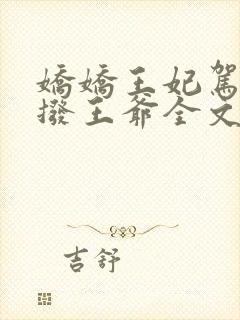 嬌嬌王妃駕
撥王爺全文
吉舒